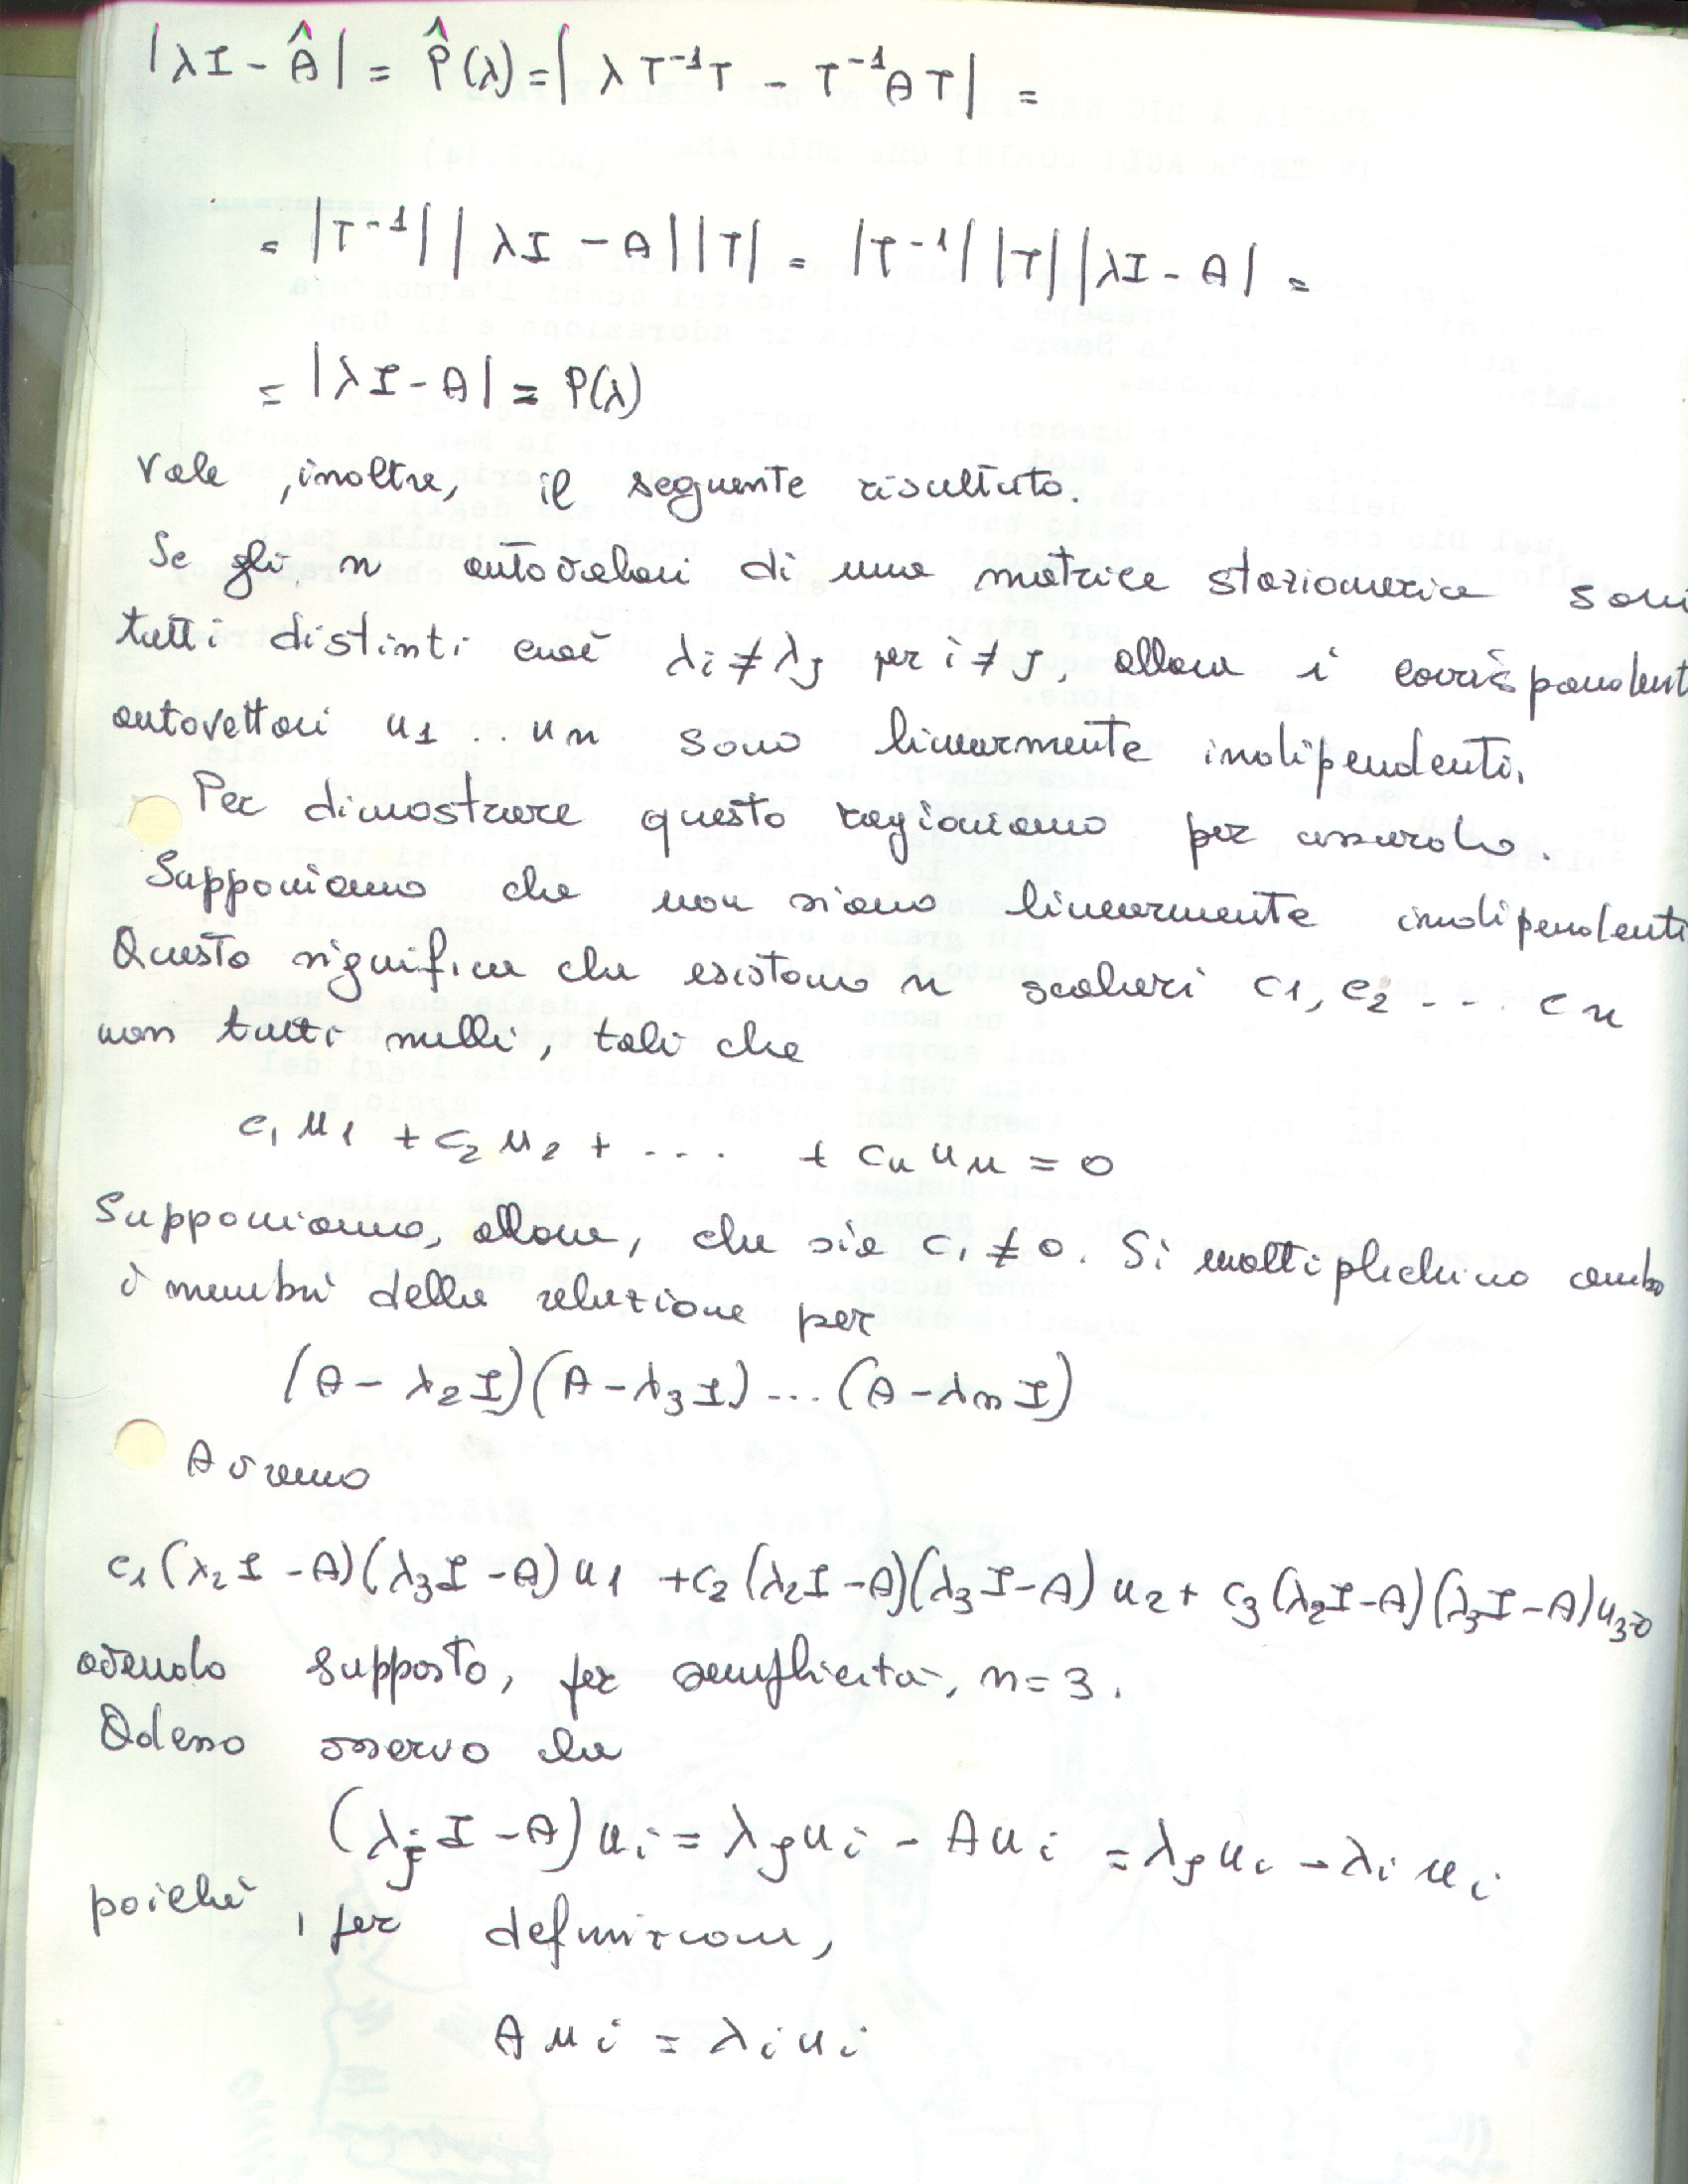 |λI - Â| = P̂(λ) = | λ T⁻¹T - T⁻¹AT | =
= |T⁻¹| | λI - A| |T| = |T⁻¹| |T| |λI - A| =
= |λI - A| = P(λ)
Vale, inoltre, il seguente risultato.
Se gli n autovalori di una matrice stazionaria sono
tutti distinti cioè λi ≠ λj per i ≠ j, allora i corrispondent
autovettori u1 ... un sono linearmente indipendenti.
Per dimostrare questo ragioniamo per assurdo.
Supponiamo che non siano linearmente indipendenti
Questo significa che esistono n scalari c1, c2 --- cn
non tutti nulli, tali che
c₁ u₁ + c₂ u₂ + ... + cn un = 0
Supponiamo, allora, che sia c₁ ≠ 0. Si moltiplichino ambo
i membri della relazione per
(A - λ₂I)(A - λ₃I) ... (A - λnI)
Avremo
c₁(λ₂I - A)(λ₃I - A)u₁ + c₂(λ₂I - A)(λ₃I - A)u₂ + c₃(λ₂I - A)(λ₃I - A)u₃=0
avendo supposto, per semplicità, n=3.
Adesso osservo che
(λjI - A)ui = λjui - Aui = λjui - λiui
poiché, per definizione,
Aui = λiui